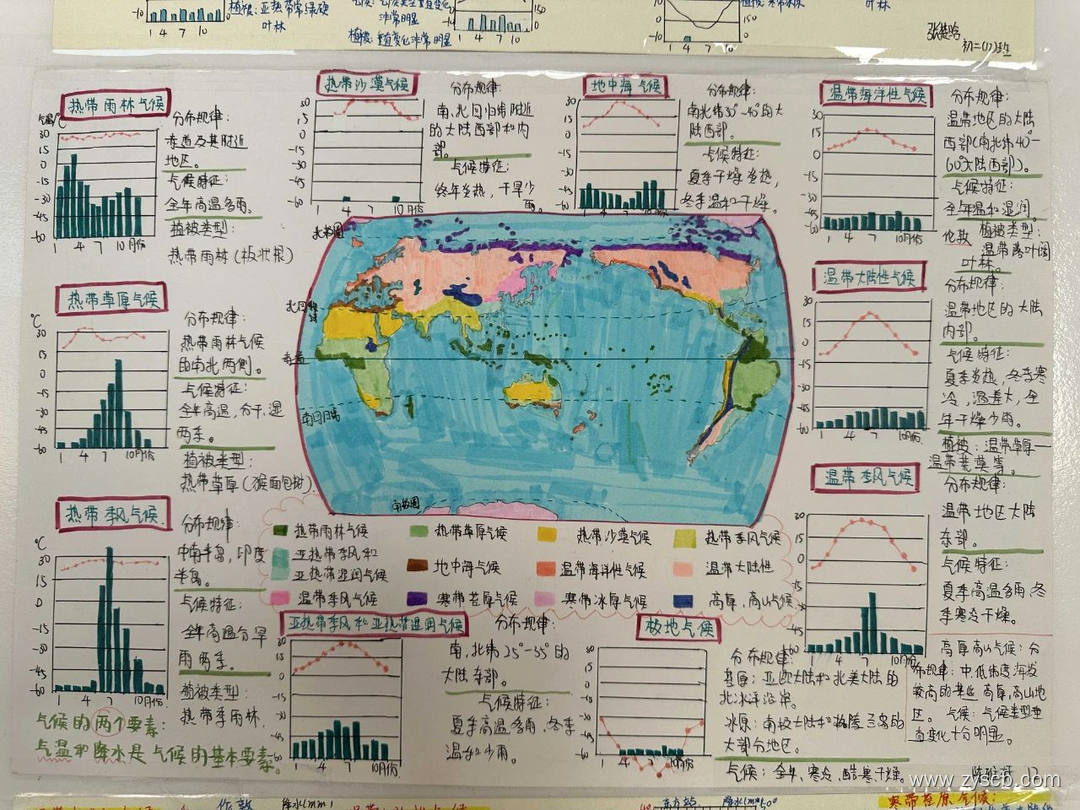 植被:亚热带常绿硬
叶林
非常明显
植被:垂直变化非常明显
叶林
初二(1)班
1 4 7 10
热带雨林气候
气温℃
30
15
0
-15
-30
-45
-60
1 4 7 10月份
分布规律:
赤道及其附近
地区。
气候特征:
全年高温多雨。
植被类型:
热带雨林(板状根)
热带沙漠气候
30
15
0
-15
-30
-45
-60
1 4 7 10月份
分布规律:
南、北回归线附近
的大陆西部和内
部。
气候特征:
终年炎热,干旱少
雨。
地中海气候
30
15
0
-15
-30
-45
-60
1 4 7 10月份
分布规律:
南北纬30°-40°的大
陆西部。
气候特征:
夏季干燥炎热,
冬季温和干燥。
温带海洋性气候
30
15
0
-15
-30
-45
-60
1 4 7 10月份
分布规律:
温带地区的大陆
西部(南北纬40°-
60°大陆西部)。
气候特征:
全年温和湿润。
伦敦 植被类型:
温带落叶阔
叶林。
热带草原气候
℃
30
15
0
-15
-30
-45
-60
1 4 7 10月份
分布规律:
热带雨林气候
的南北两侧。
气候特征:
全年高温,分干、湿
两季。
植被类型:
热带草原(猴面包树)
温带大陆性气候
30
15
0
-15
-30
-45
-60
1 4 7 10月份
分布规律:
温带地区的大陆
内部。
气候特征:
夏季炎热,冬季寒
冷,温差大,全
年干燥少雨。
植被:温带草原—
温带荒漠等。
北极圈
北回归线
赤道
南回归线
南极圈
热带季风气候
℃
30
15
0
-15
-30
-45
-60
1 4 7 10月份
分布规律:
中南半岛,印度
半岛。
气候特征:
全年高温分旱
雨两季。
植被类型:
热带季雨林.
温带季风气候
30
15
0
-15
-30
-45
-60
1 4 7 10月份
分布规律:
温带地区大陆
东部。
气候特征:
夏季高温多雨,冬
季寒冷干燥。
热带雨林气候 热带草原气候 热带沙漠气候 热带季风气候
亚热带季风和
亚热带湿润气候 地中海气候 温带海洋气候 温带大陆性
温带季风气候 寒带苔原气候 寒带冰原气候 高原、高山气候
亚热带季风和亚热带湿润气候
30
15
0
-15
-30
-45
-60
1 4 7 10月份
分布规律:
南、北纬25°-35°的
大陆东部。
气候特征:
夏季高温多雨,冬季
温和少雨。
极地气候
30
15
0
-15
-30
-45
-60
1 4 7 10月份
分布规律:
苔原:亚欧大陆和北美大陆的
北冰洋沿岸。
冰原:南极大陆和格陵兰岛的
大部分地区。
气候:全年寒冷,酷寒干燥.
高原高山气候:分
布规律:中、低纬度海拔
较高的某些高原,高山地
区。气候:气候类型垂
直变化十分明显。
气候的两个要素:
气温和降水是气候的基本要素.
www.zyscb.com
降水(mm)
寒带苔原气候: